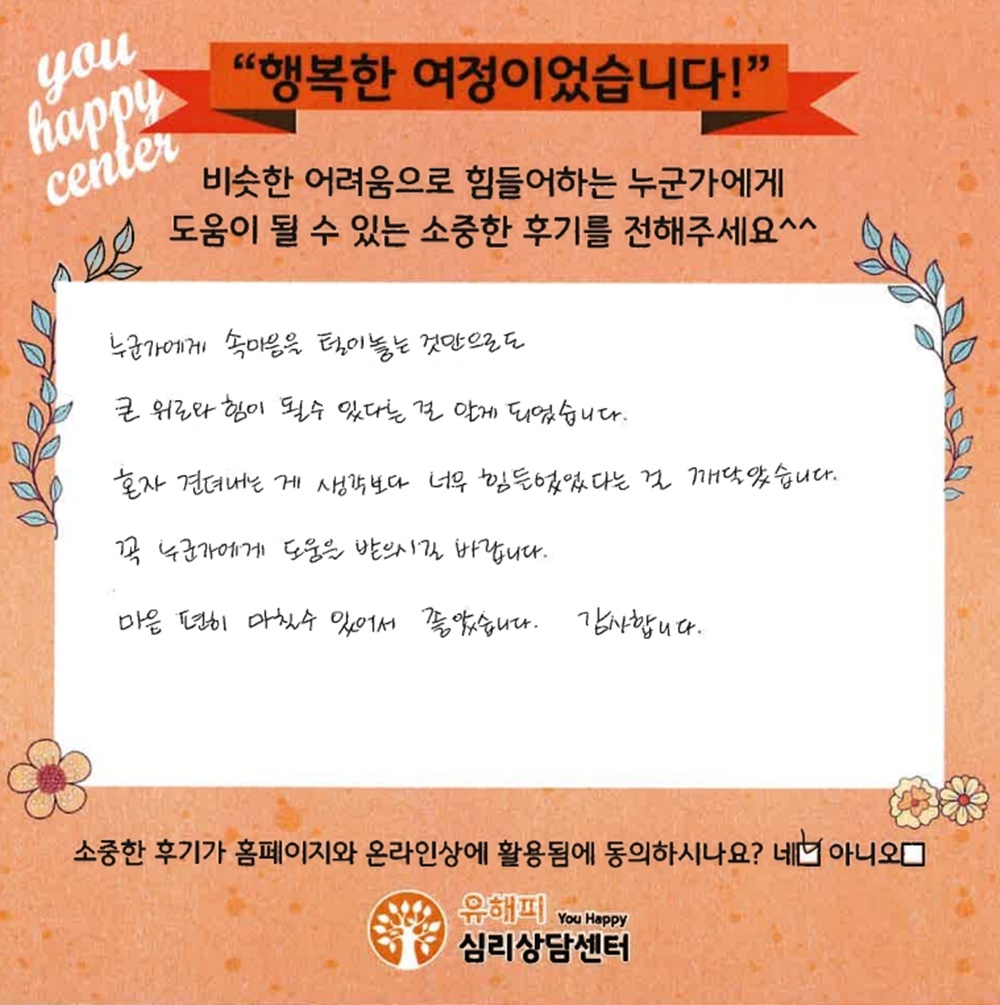 you
happy
center
“행복한 여정이었습니다!”
비슷한 어려움으로 힘들어하는 누군가에게
도움이 될 수 있는 소중한 후기를 전해주세요^^
누군가에게 속마음을 털어놓는 것만으로도
큰 위로와 힘이 될수 있다는 걸 알게 되었습니다.
혼자 견뎌내는 게 생각보다 너무 힘든었었다는 걸 깨달았습니다.
꼭 누군가에게 도움을 받으시길 바랍니다.
마음 편히 마칠수 있어서 좋았습니다. 감사합니다.
소중한 후기가 홈페이지와 온라인상에 활용됨에 동의하시나요? 네☑ 아니오☐
유해피 You Happy
심리상담센터